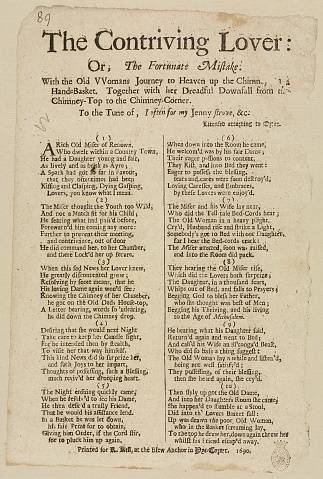 89
The Contriving Lover:
Or, The Fortunate Mistake:
With the Old VVomans Journey to Heaven up the Chimn
Hand-Basket. Together with her Dreadful Downfall from
Chimney-Top to the Chimney-Corner.
To the Tune of, I often for my Jenny strove, &c:
Licensed according to Order.
(1)
A Rich Old Miser of Renown,
Who dwelt within a Country Town,
He had a Daughter young and fair,
As lively and as bright as Ayre;
A Spark had got so far in favour,
that they oftentimes had been
Kissing and Clasping, Dying Gasping,
Lovers, you know what I mean.
(2)
The Miser thought the Youth too Wild,
And not a Match fit for his Child;
He fearing what had pass'd before,
Forewarn'd him coming any more:
Further to prevent their meeting,
and contrivance, out of door
He did command her, to her Chamber,
and there Lock'd her up secure.
(3)
When this sad News her Lover knew,
He greatly discontented grew;
Resolving by some means, that he
His loving Dame again wou'd see:
Knowing the Chimney of her Chamber,
he got on the Old Dads House-top,
A Letter bearing, words so indearing,
he did down the Chimney drop.
(4)
Desiring that she would next Night
Take care to keep her Candle light,
For he intended then by stealth,
To visit her that way himself,
This kind News did so surprize her,
and such Joys to her impart,
Thoughts of possessing, such a Blessing,
much reviv'd her drooping heart.
(5)
The Night ensuing quickly came,
When he desir'd to see his Dame,
He then desir'd a trusty Friend,
That he would his assistance lend.
In a Basket he was let down,
his fair Prize for to obtain,
Giving him Order, if the Cord stir,
for to pluck him up again.
(6)
When down into the Room he came,
He welcom'd was by his fair Dame;
Their eager passions to content,
They Kist, and into Bed they went:
Eager to possess the blessing,
fears and cares were soon destroy'd,
Loving Caresses, and Embraces,
by these Lovers were enjoy'd.
(7)
The Miser and his Wife lay near,
Who did the Tell-tale Bed-Cords hear;
The Old Woman in a heavy plight,
Cry'd, Husband rise and Strike a Light,
Somebody's got to Bed with our Daughter,
for I hear the Bed-cords crack:
The Miser amazed, soon was raised,
and into the Room did pack.
(8)
They hearing the Old Miser rise,
Which did the Lovers both surprize;
The Daughter, in a thousand fears,
Whips out of Bed, and falls to Prayers;
Begging God to bless her Father,
who she thought was best of Men;
Begging his Thriving, and his living
to the Age of Methusalem.
(9)
He hearing what his Daughter said,
Return'd again and went to Bed;
And call'd his Wife an ill-tongu'd Beast,
Who did so base a thing suggest:
The Old Woman lay a while and listen'd,
being not well satisfy'd;
They possessing, of their blessing,
then she heard again, she cry'd.
(10)
Then slyly up got the Old Dame,
And into her Daughters Room she came;
She happen'd to stumble at a Stool,
Did into th' Lovers Basket fall:
Up was drawn the poor Old Woman,
who in the Basket screaming lay,
To the top he drew her, down again threw her
whilst his Friend escap'd away.
Printed for R. Kell, at the Blew Anchor in Pye-Corner. 1690.